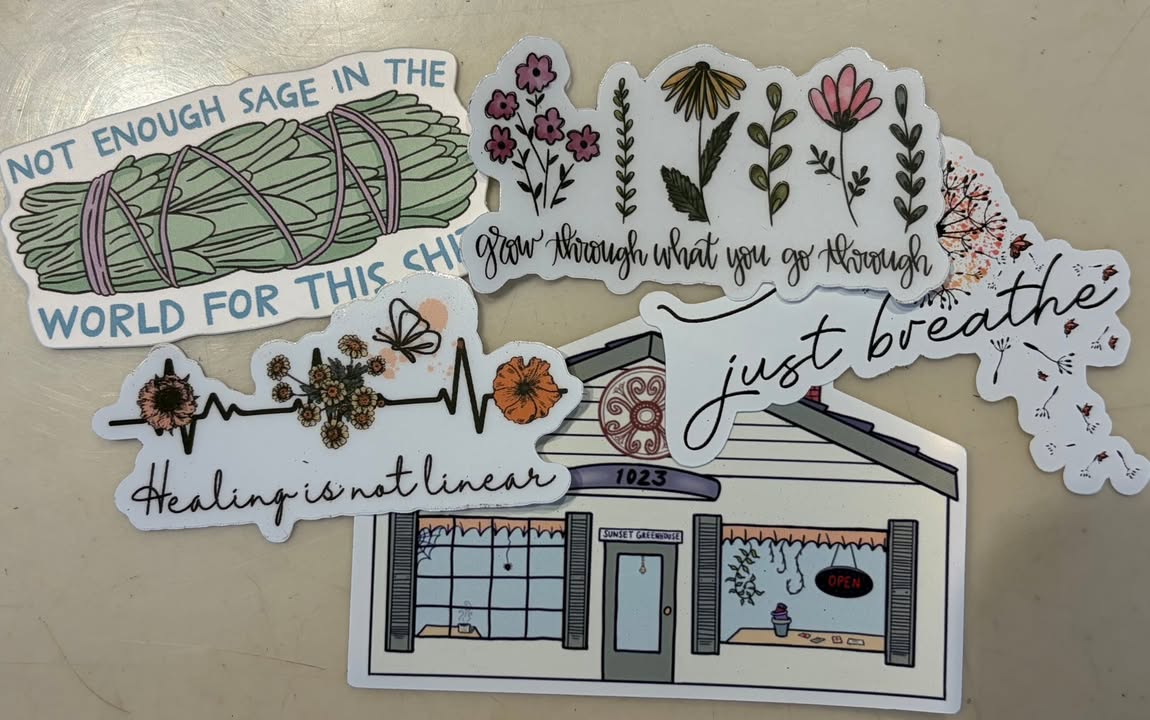 NOT ENOUGH SAGE IN THE
WORLD FOR THIS SHI
grow through what you go through
just breathe
Healing is not linear
1023
SUNSET GREENHOUSE
OPEN